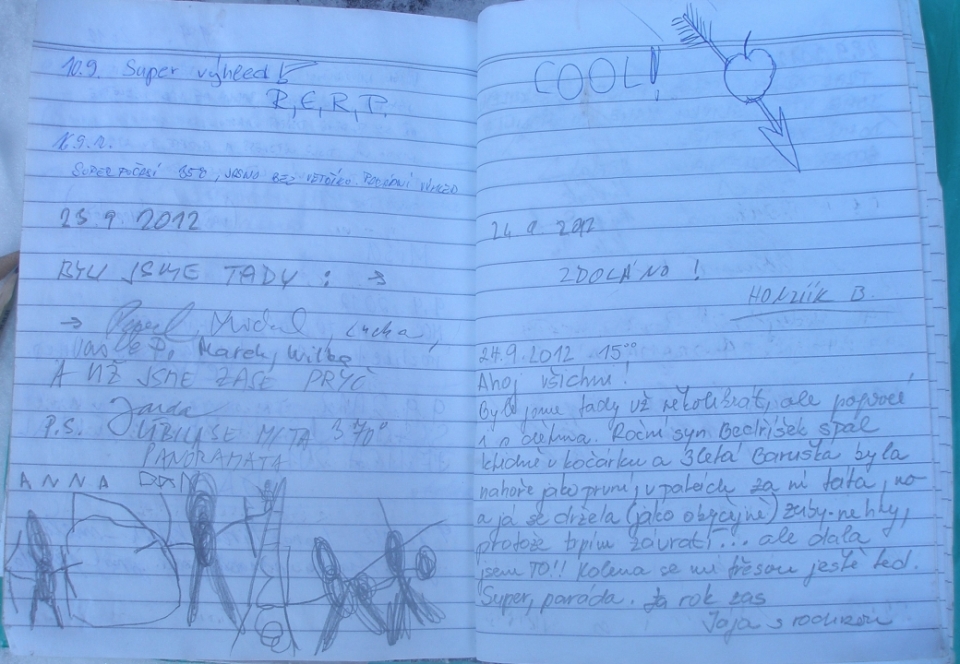 10.9. Super výhled
P, E, R, T,
16.9.12.
SUPER POČASÍ, JASNO BEZ VĚTŘÍKU. POŘÁDNÍ VÝHLED
23.9.2012
BYLI JSME TADY : →
→ Pepa, Michal, Lucka,
Marek, Wilka
A UŽ JSME ZASE PRYČ
Jarda
P.S. LÍBILA SE MI TA 370°
PANORAMATA
ANNA DAN
COOL!
24 9 2012
ZDOLÁNO !
HONZÍK B.
24.9.2012 15⁰⁰
Ahoj všichni !
Byli jsme tady už několikrát, ale poprvé
i s dětma. Roční syn Bedříšek spal
klidně v kočárku a 3letá Baruška byla
nahoře jako první, v patách za ní táta, no
a já se držela (jako obyčejně) zuby-nehty,
protože trpím závratí... ale dala
jsem TO!! Kolena se mi třesou ještě teď.
Super, paráda. Za rok zas
Jája s rodinou